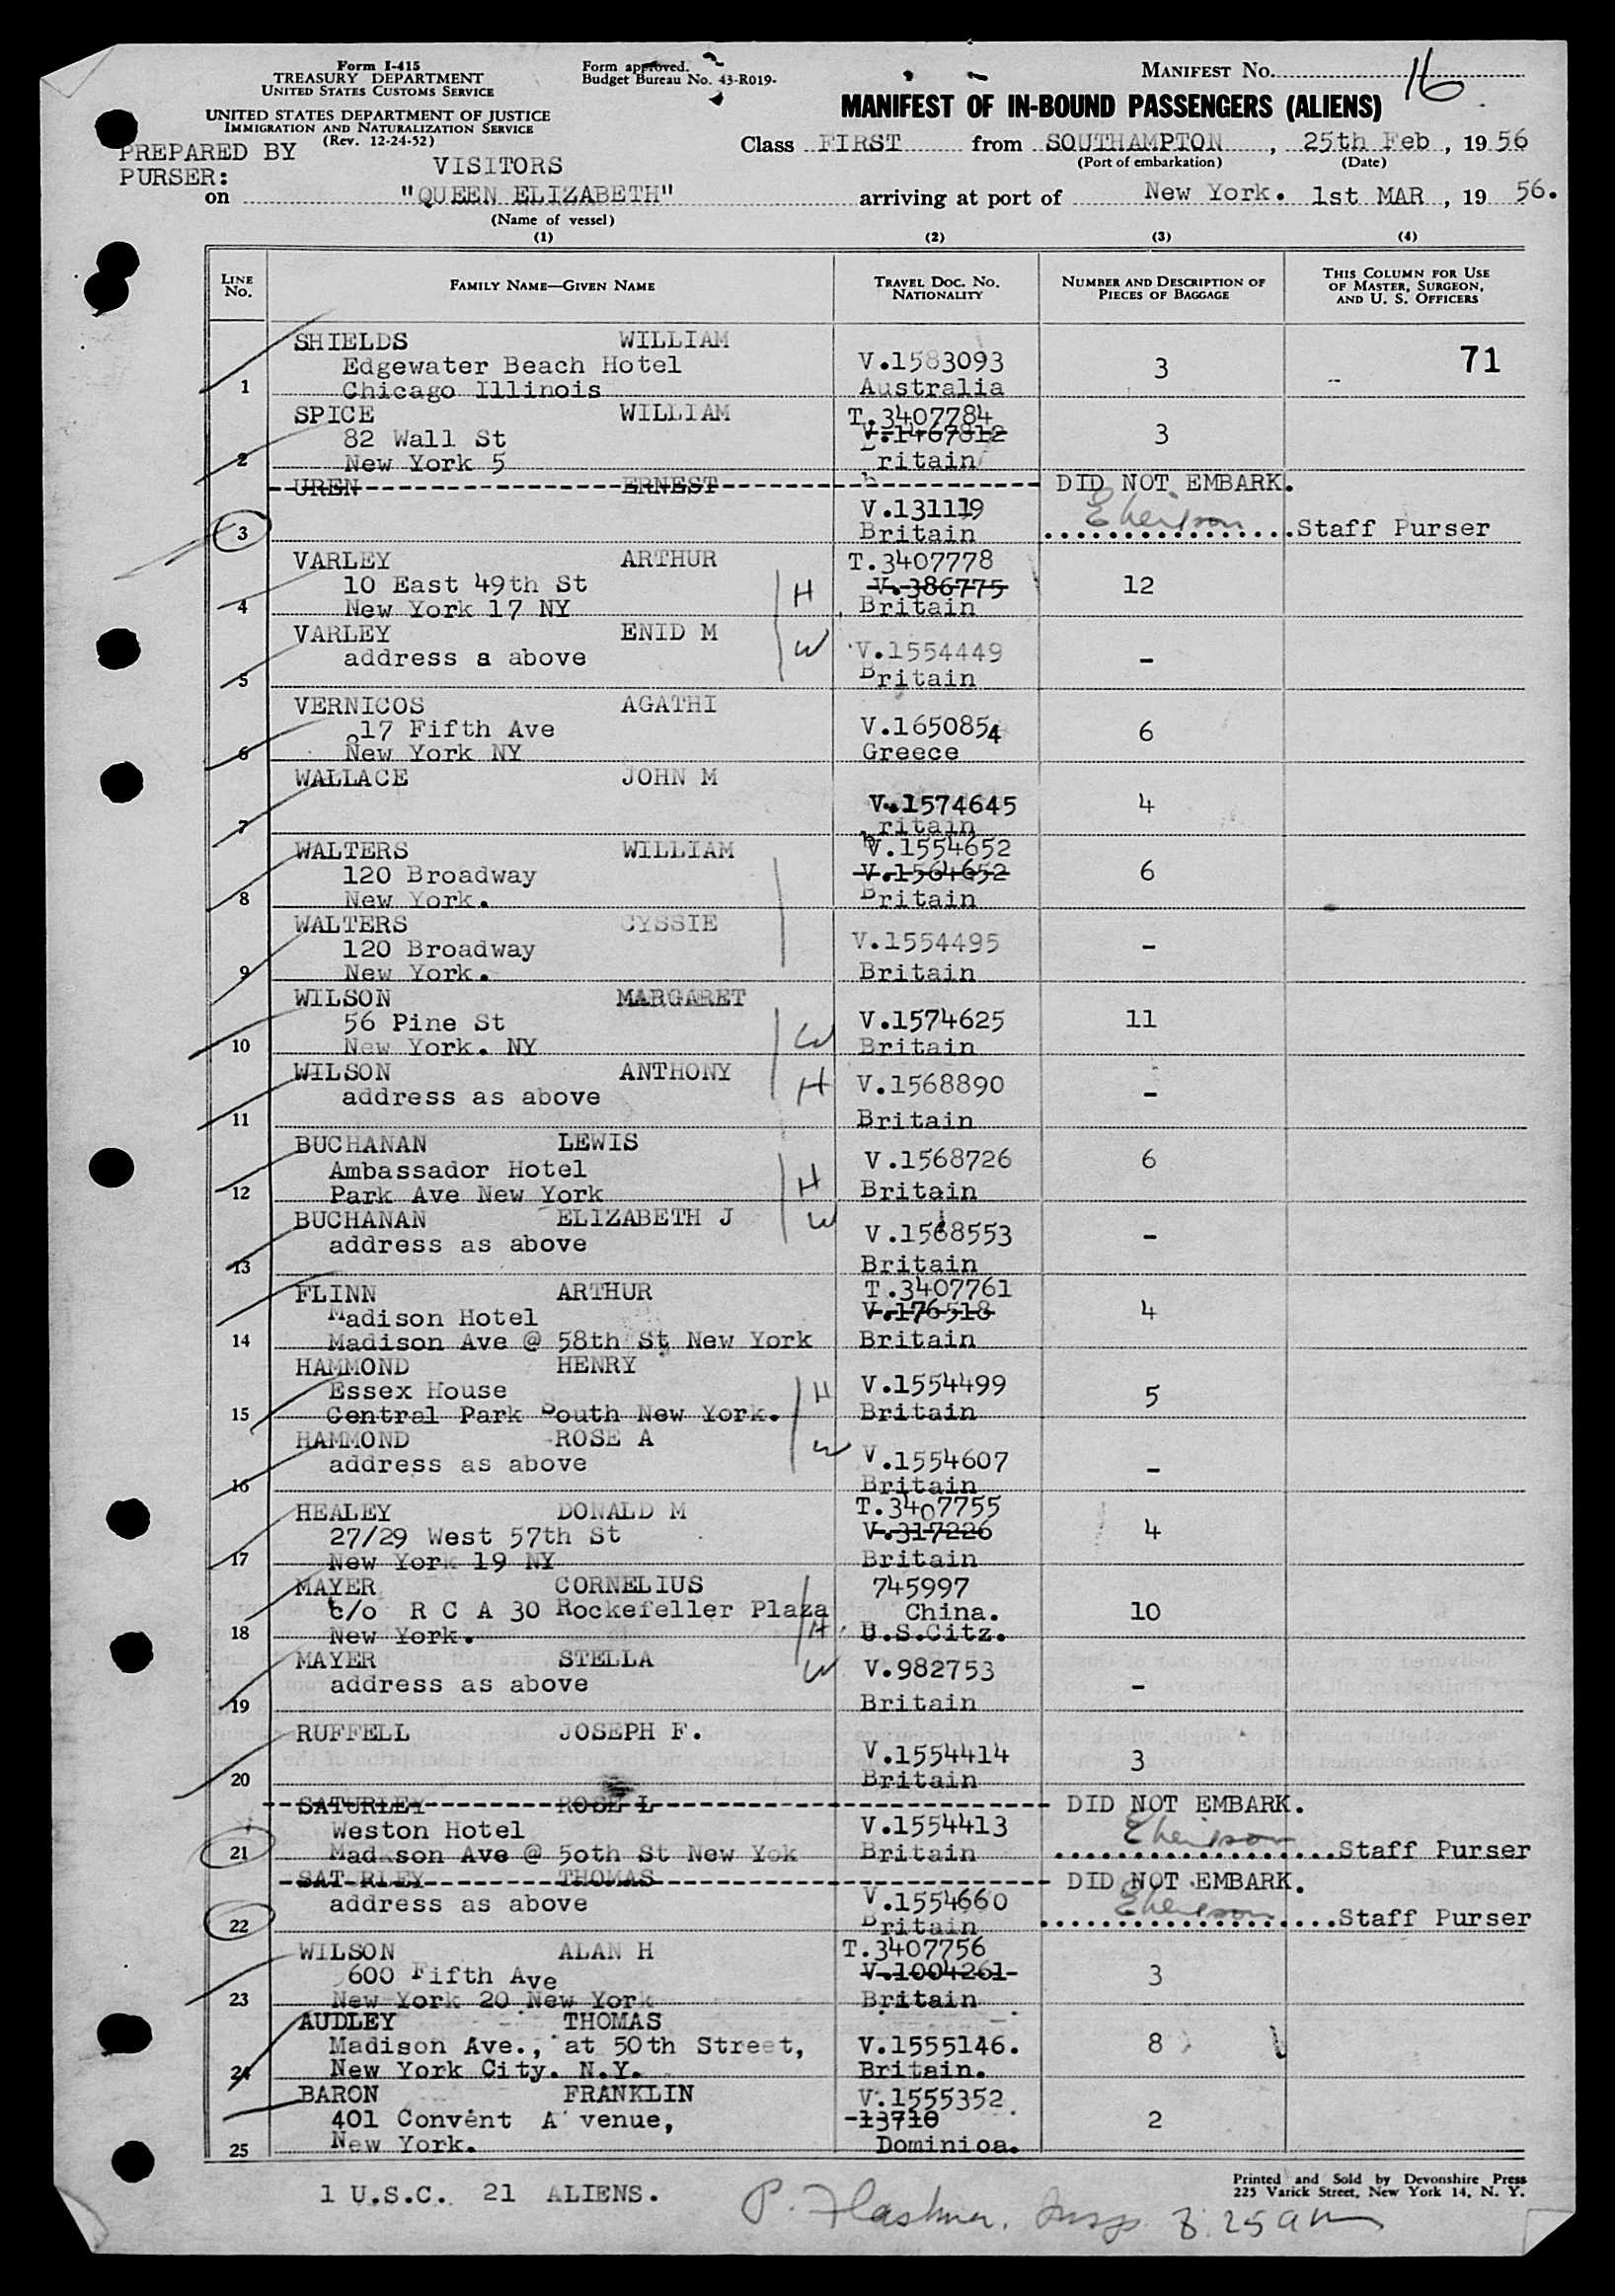 Form I-415
TREASURY DEPARTMENT
UNITED STATES CUSTOMS SERVICE
UNITED STATES DEPARTMENT OF JUSTICE
IMMIGRATION AND NATURALIZATION SERVICE
(Rev. 12-24-52)
Form approved.
Budget Bureau No. 43-R019-
MANIFEST NO. 16
MANIFEST OF IN-BOUND PASSENGERS (ALIENS)
Class FIRST from SOUTHAMPTON, 25th Feb, 1956
(Port of embarkation) (Date)
PREPARED BY
PURSER:
VISITORS
on "QUEEN ELIZABETH" arriving at port of New York. 1st MAR, 19 56.
(Name of vessel)
(1) (2) (3) (4)
LINE No. FAMILY NAME—GIVEN NAME TRAVEL DOC. NO. NATIONALITY NUMBER AND DESCRIPTION OF PIECES OF BAGGAGE THIS COLUMN FOR USE OF MASTER, SURGEON, AND U. S. OFFICERS
SHIELDS WILLIAM
Edgewater Beach Hotel V.1583093 3 71
1 Chicago Illinois Australia
SPICE WILLIAM T.3407784
82 Wall St V.1467812 3
2 New York 5 Britain
UREN ERNEST DID NOT EMBARK.
V.131119
3 Britain Staff Purser
VARLEY ARTHUR T.3407778
10 East 49th St H V.386775 12
4 New York 17 NY Britain
VARLEY ENID M
address a above W V.1554449 -
5 Britain
VERNICOS AGATHI
17 Fifth Ave V.1650854 6
6 New York NY Greece
WALLACE JOHN M
V.1574645 4
7 Britain
WALTERS WILLIAM V.1554652
120 Broadway V.1564652 6
8 New York. Britain
WALTERS CYSSIE
120 Broadway V.1554495 -
9 New York. Britain
WILSON MARGARET
56 Pine St W V.1574625 11
10 New York. NY Britain
WILSON ANTHONY
address as above H V.1568890 -
11 Britain
BUCHANAN LEWIS
Ambassador Hotel V.1568726 6
12 Park Ave New York H Britain
BUCHANAN ELIZABETH J W
address as above V.1568553 -
13 Britain
FLINN ARTHUR T.3407761
Madison Hotel V.176518 4
14 Madison Ave @ 58th St New York Britain
HAMMOND HENRY
Essex House H V.1554499 5
15 Central Park South New York. Britain
HAMMOND ROSE A W
address as above V.1554607 -
16 Britain
HEALEY DONALD M T.3407755
27/29 West 57th St V.317226 4
17 New York 19 NY Britain
MAYER CORNELIUS 745997
c/o R C A 30 Rockefeller Plaza China. 10
18 New York. H U.S.Citz.
MAYER STELLA W V.982753
address as above -
19 Britain
RUFFELL JOSEPH F.
V.1554414 3
20 Britain
SATURLEY ROSE L DID NOT EMBARK.
Weston Hotel V.1554413
21 Madkson Ave @ 50th St New Yok Britain Staff Purser
SAT RLEY THOMAS DID NOT EMBARK.
address as above V.1554660
22 Britain Staff Purser
WILSON ALAN H T.3407756
600 Fifth Ave V.1004261 3
23 New York 20 New York Britain
AUDLEY THOMAS
Madison Ave., at 50th Street, V.1555146. 8
24 New York City. N.Y. Britain.
BARON FRANKLIN V.1555352
401 Convent A venue, 13710 2
25 New York. Dominica.
1 U.S.C. 21 ALIENS.
P. Flashner, Insp. 8:25 am
Printed and Sold by Devonshire Press
225 Varick Street, New York 14, N. Y.